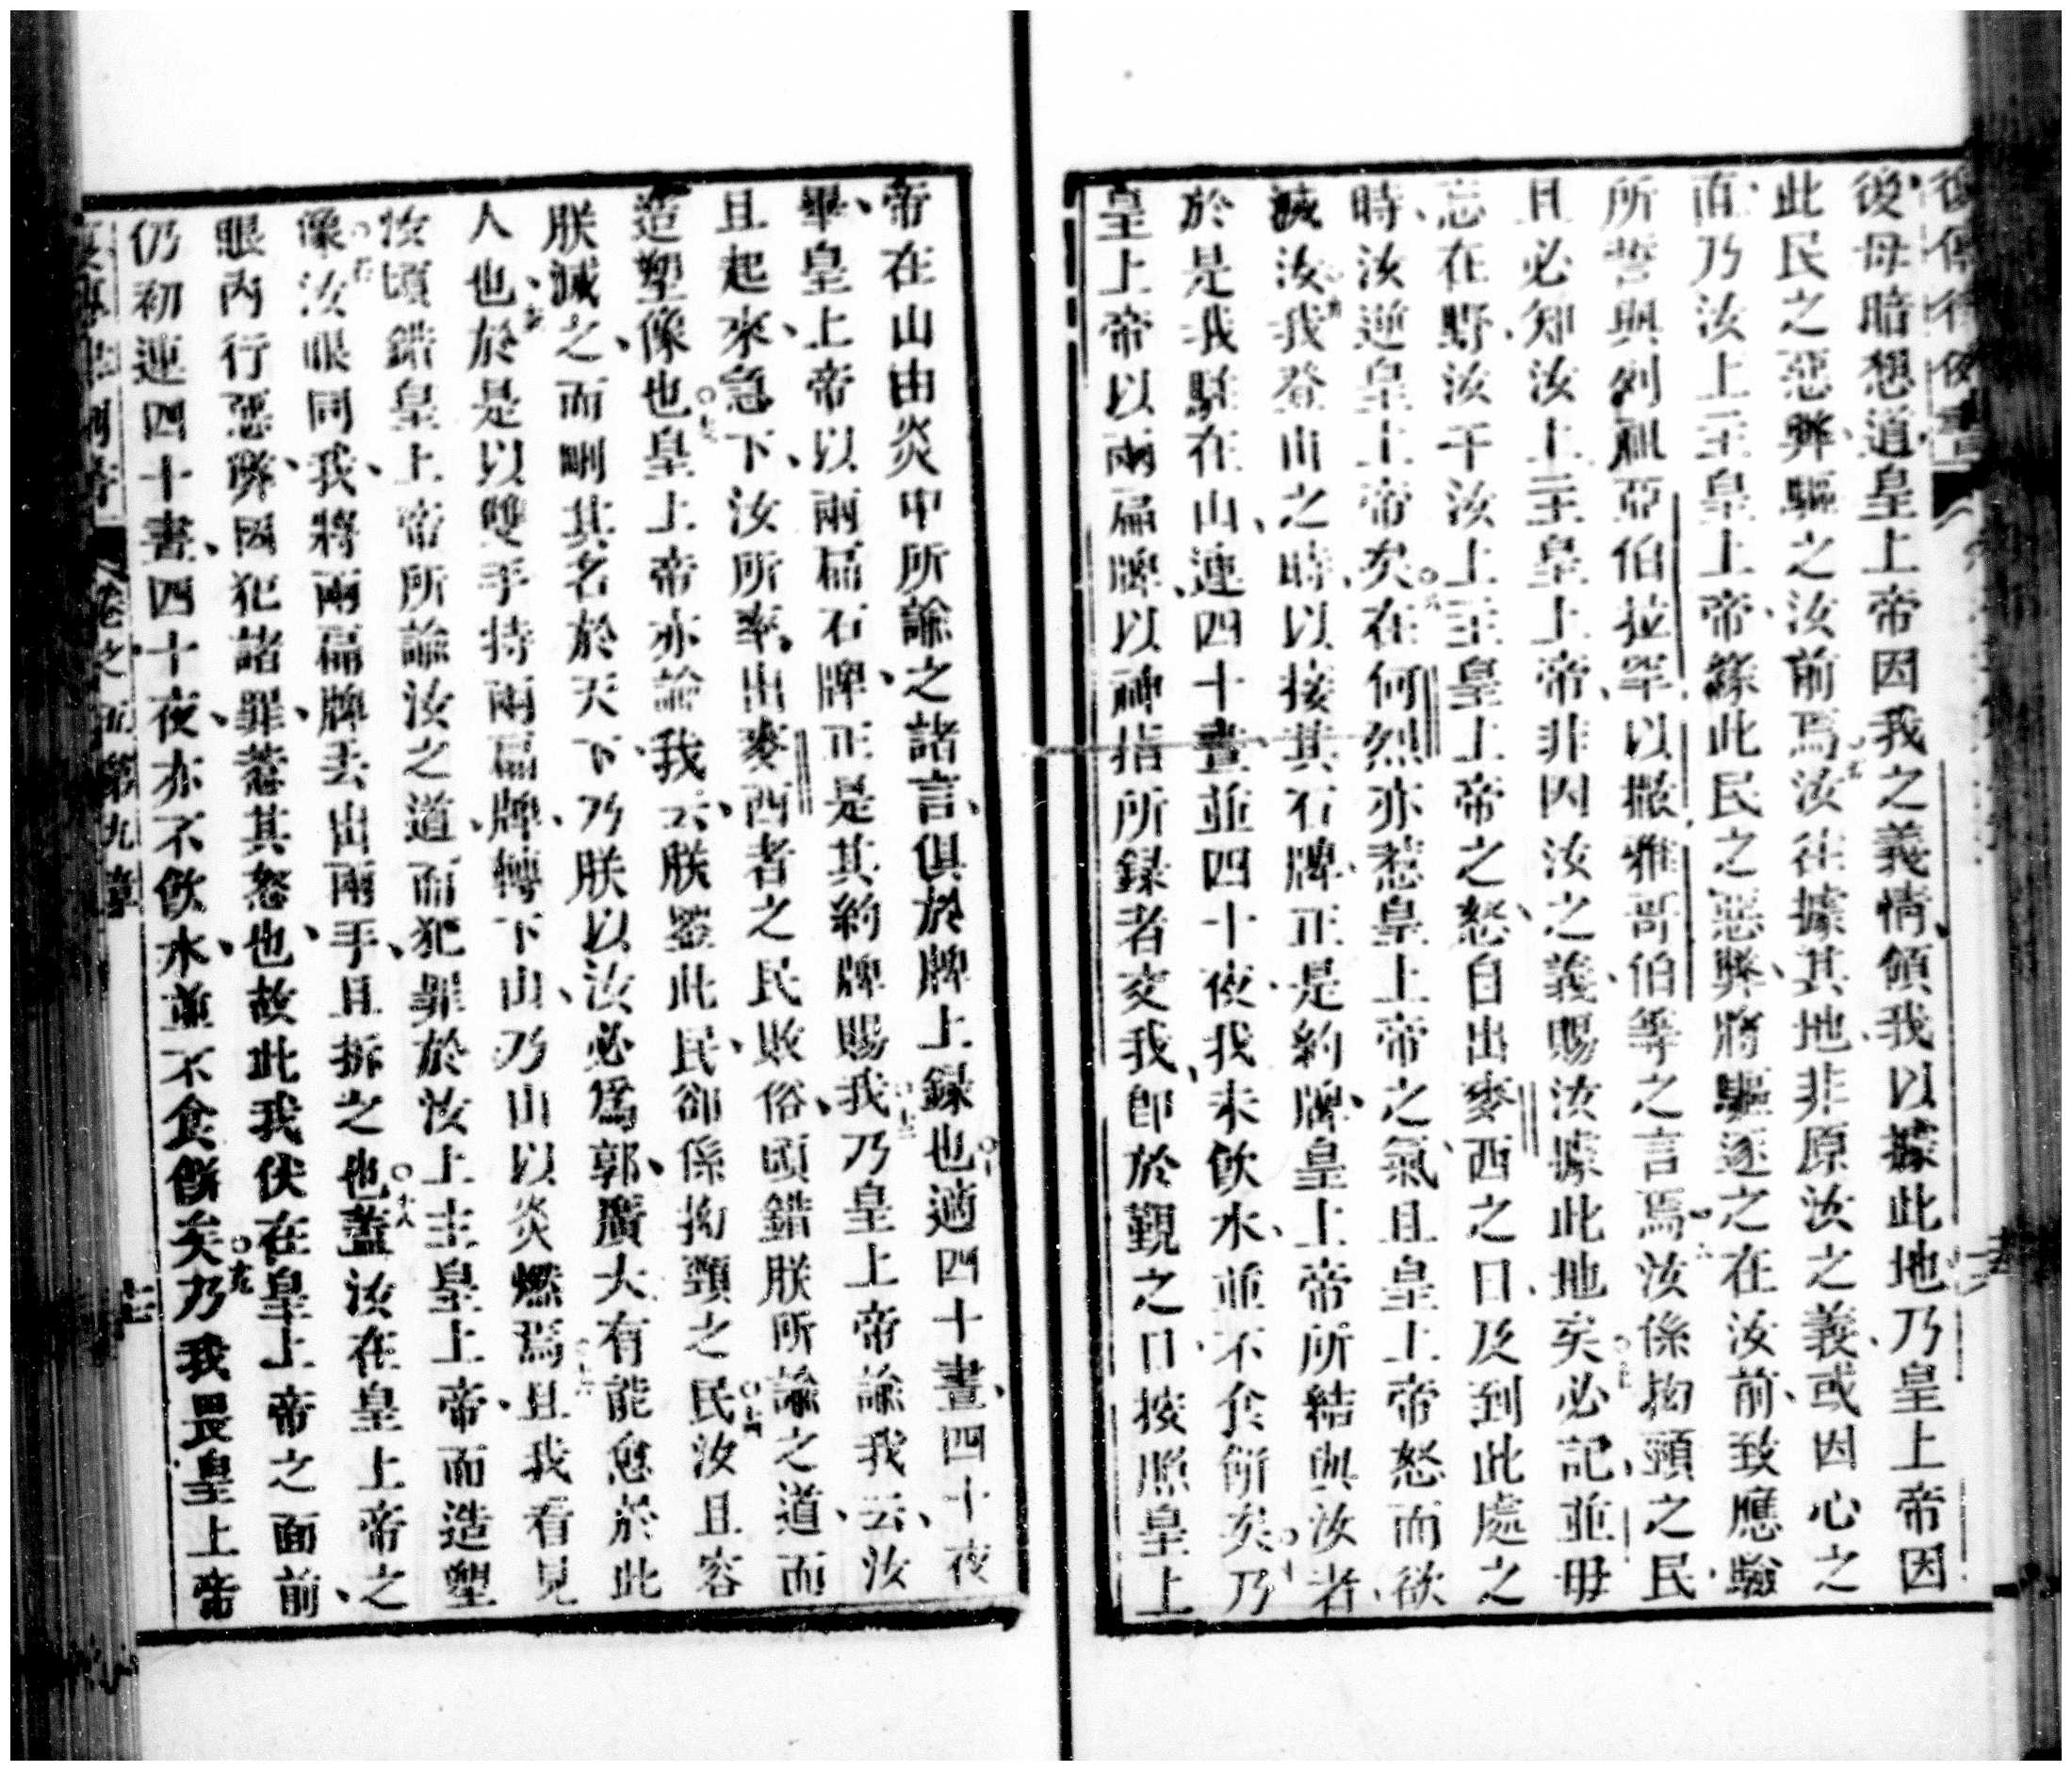 復傳律例書
後母暗想道皇上帝因我之義情領我以據此地乃皇上帝因
此民之惡弊驅之汝前焉汝往據其地非原汝之義或因心之
直乃汝上主皇上帝緣此民之惡弊將驅逐之在汝前致應驗
所誓與列祖亞伯拉罕以撒雅哥伯等之言焉汝係拗頸之民
且必知汝上主皇上帝非因汝之義賜汝據此地矣必記並毋
忘在野汝干汝上主皇上帝之怒自出麥西之日及到此處之
時汝逆皇上帝矣在何烈亦惹皇上帝之氣且皇上帝怒而欲
滅汝我登山之時以接其石牌正是約牌皇上帝所結與汝者
於是我駐在山連四十晝並四十夜我未飲水並不食餅矣乃
皇上帝以兩扁牌以神指所錄者交我卽於覲之日按照皇上
帝在山由炎中所諭之諸言俱於牌上錄也適四十晝四十夜
畢皇上帝以兩扁石牌正是其約牌賜我乃皇上帝諭我云汝
且起來急下汝所率出麥西者之民敗俗頃錯朕所諭之道而
造塑像也皇上帝亦諭我云朕鑒此民卻係拗頸之民汝且容
朕滅之而刪其名於天下乃朕以汝必爲郭廣大有能愈於此
人也於是以雙手持兩扁牌轉下山乃山以炎燃焉且我看見
汝頃錯皇上帝所諭汝之道而犯罪於汝上主皇上帝而造塑
像汝眼同我將兩扁牌丟出兩手且拆之也蓋汝在皇上帝之
眼內行惡弊因犯諸罪惹其怒也故此我伏在皇上帝之面前
仍初連四十晝四十夜亦不飲水並不食餅矣乃我畏皇上帝
復傳律例書 卷之五第九章 十七